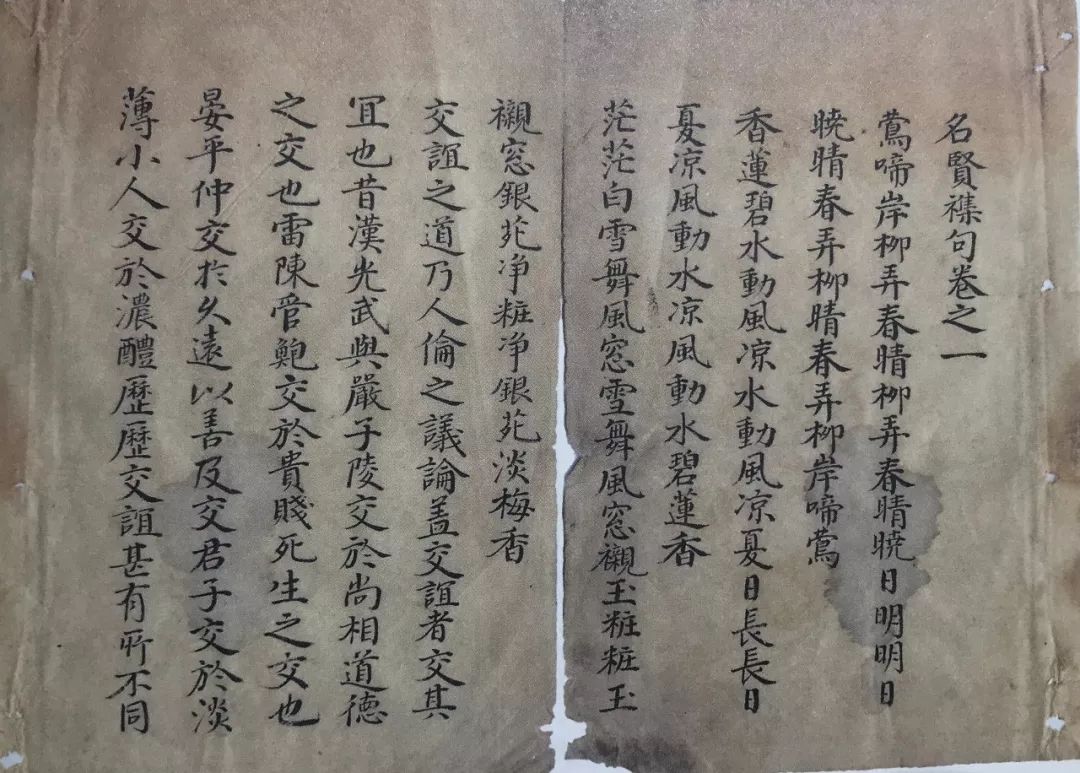 名賢襍句卷之一
鶯啼岸柳弄春晴柳弄春晴曉日明明日
曉晴春弄柳晴春弄柳岸啼鶯
香蓮碧水動風凉水動風凉夏日長長日
夏凉風動水凉風動水碧蓮香
茫茫白雪舞風窓雪舞風窓襯玉粧粧玉
襯窓銀苑净粧净銀苑淡梅香
交誼之道乃人倫之議論盖交誼者交其
冝也昔漢光武與嚴子陵交於尚相道德
之交也雷陳管鮑交於貴賤死生之交也
晏平仲交於久遠以善及交君子交於淡
薄小人交於濃醴歷歷交誼甚有所不同